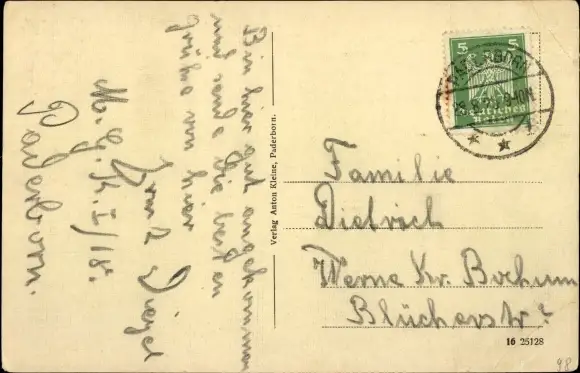 Bin hier gut angekommen
und sende die besten
Grüße von hier
Paderborn.
Verlag Anton Kleine, Paderborn.
5 5
Deutsches
Reich
PADERBORN
Familie
Dietrich
Werne Kr. Bochum
Blücherstr.
16 25128
98